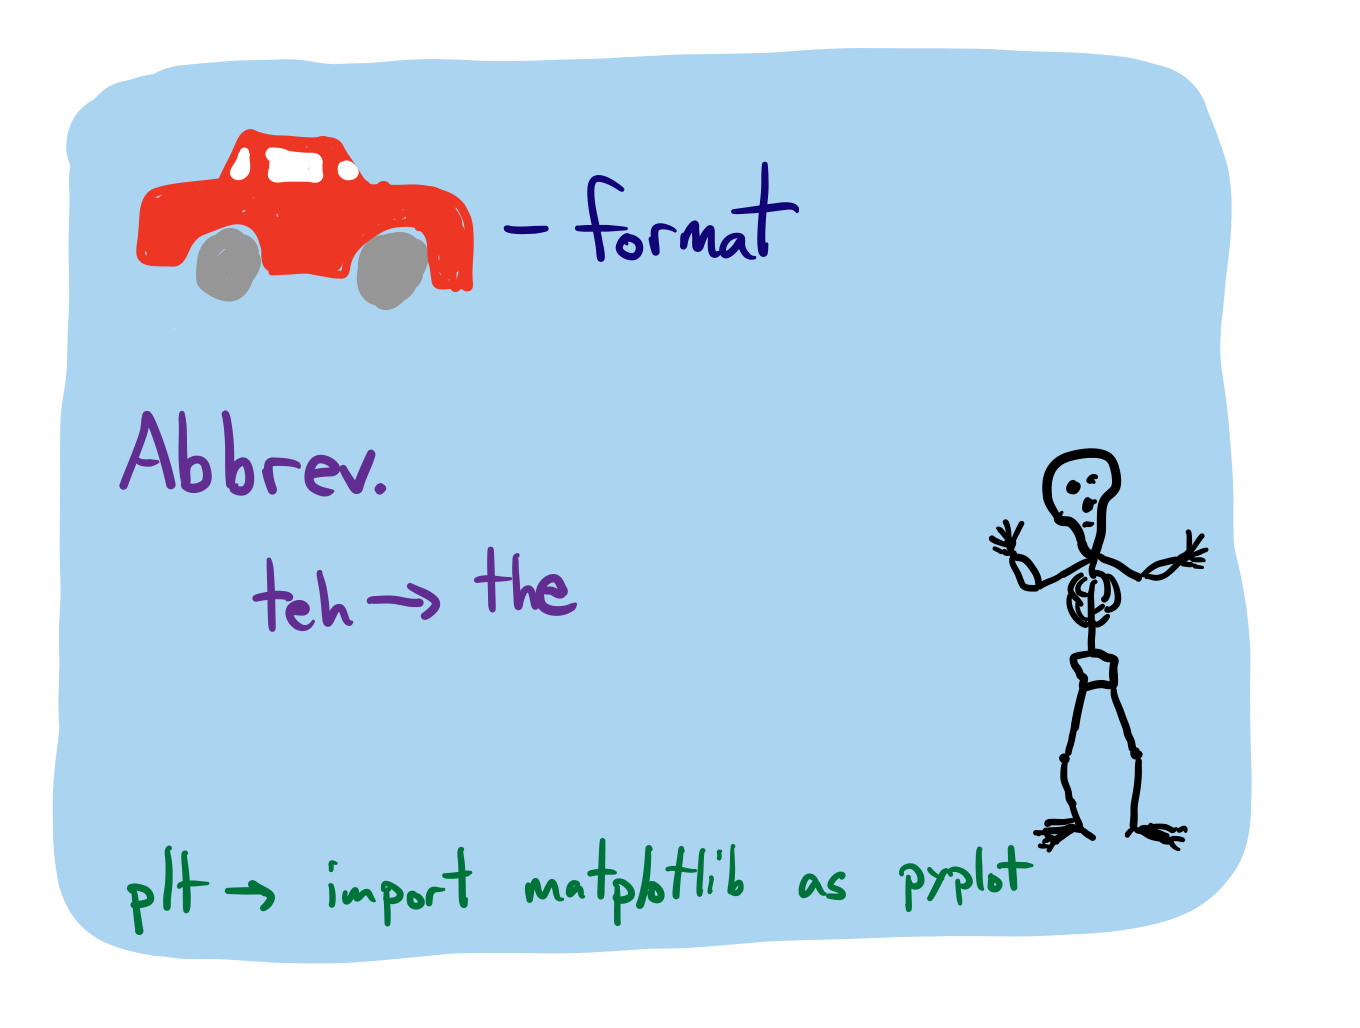 - format
Abbrev.
teh → the
plt → import matplotlib as pyplot